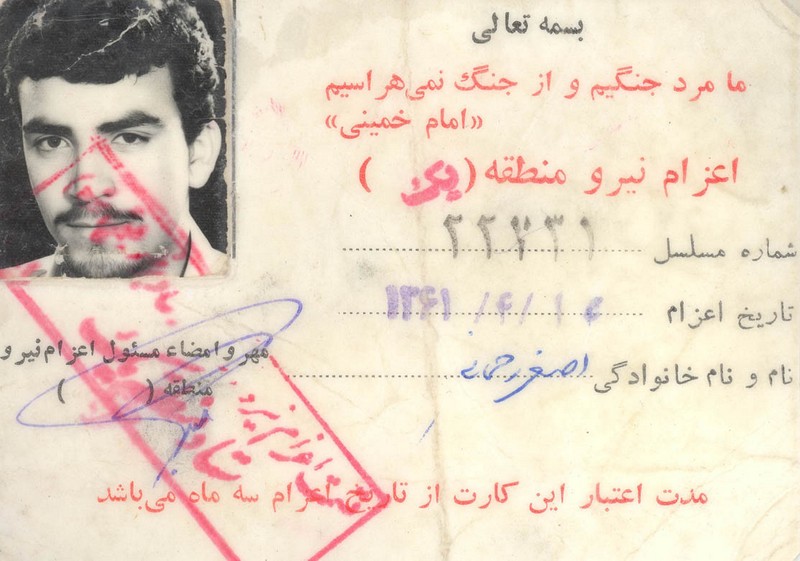 بسمه تعالی
ما مرد جنگیم و از جنگ نمی‌هراسیم
«امام خمینی»
اعزام نیرو منطقه (یک)
شماره مسلسل ۲۲۷۳۱
تاریخ اعزام ۱۳۶۱/۶/۱۶
نام و نام خانوادگی اصغر رحمانی
مهر و امضاء مسئول اعزام نیرو
منطقه ( )
مدت اعتبار این کارت از تاریخ اعزام سه ماه می‌باشد